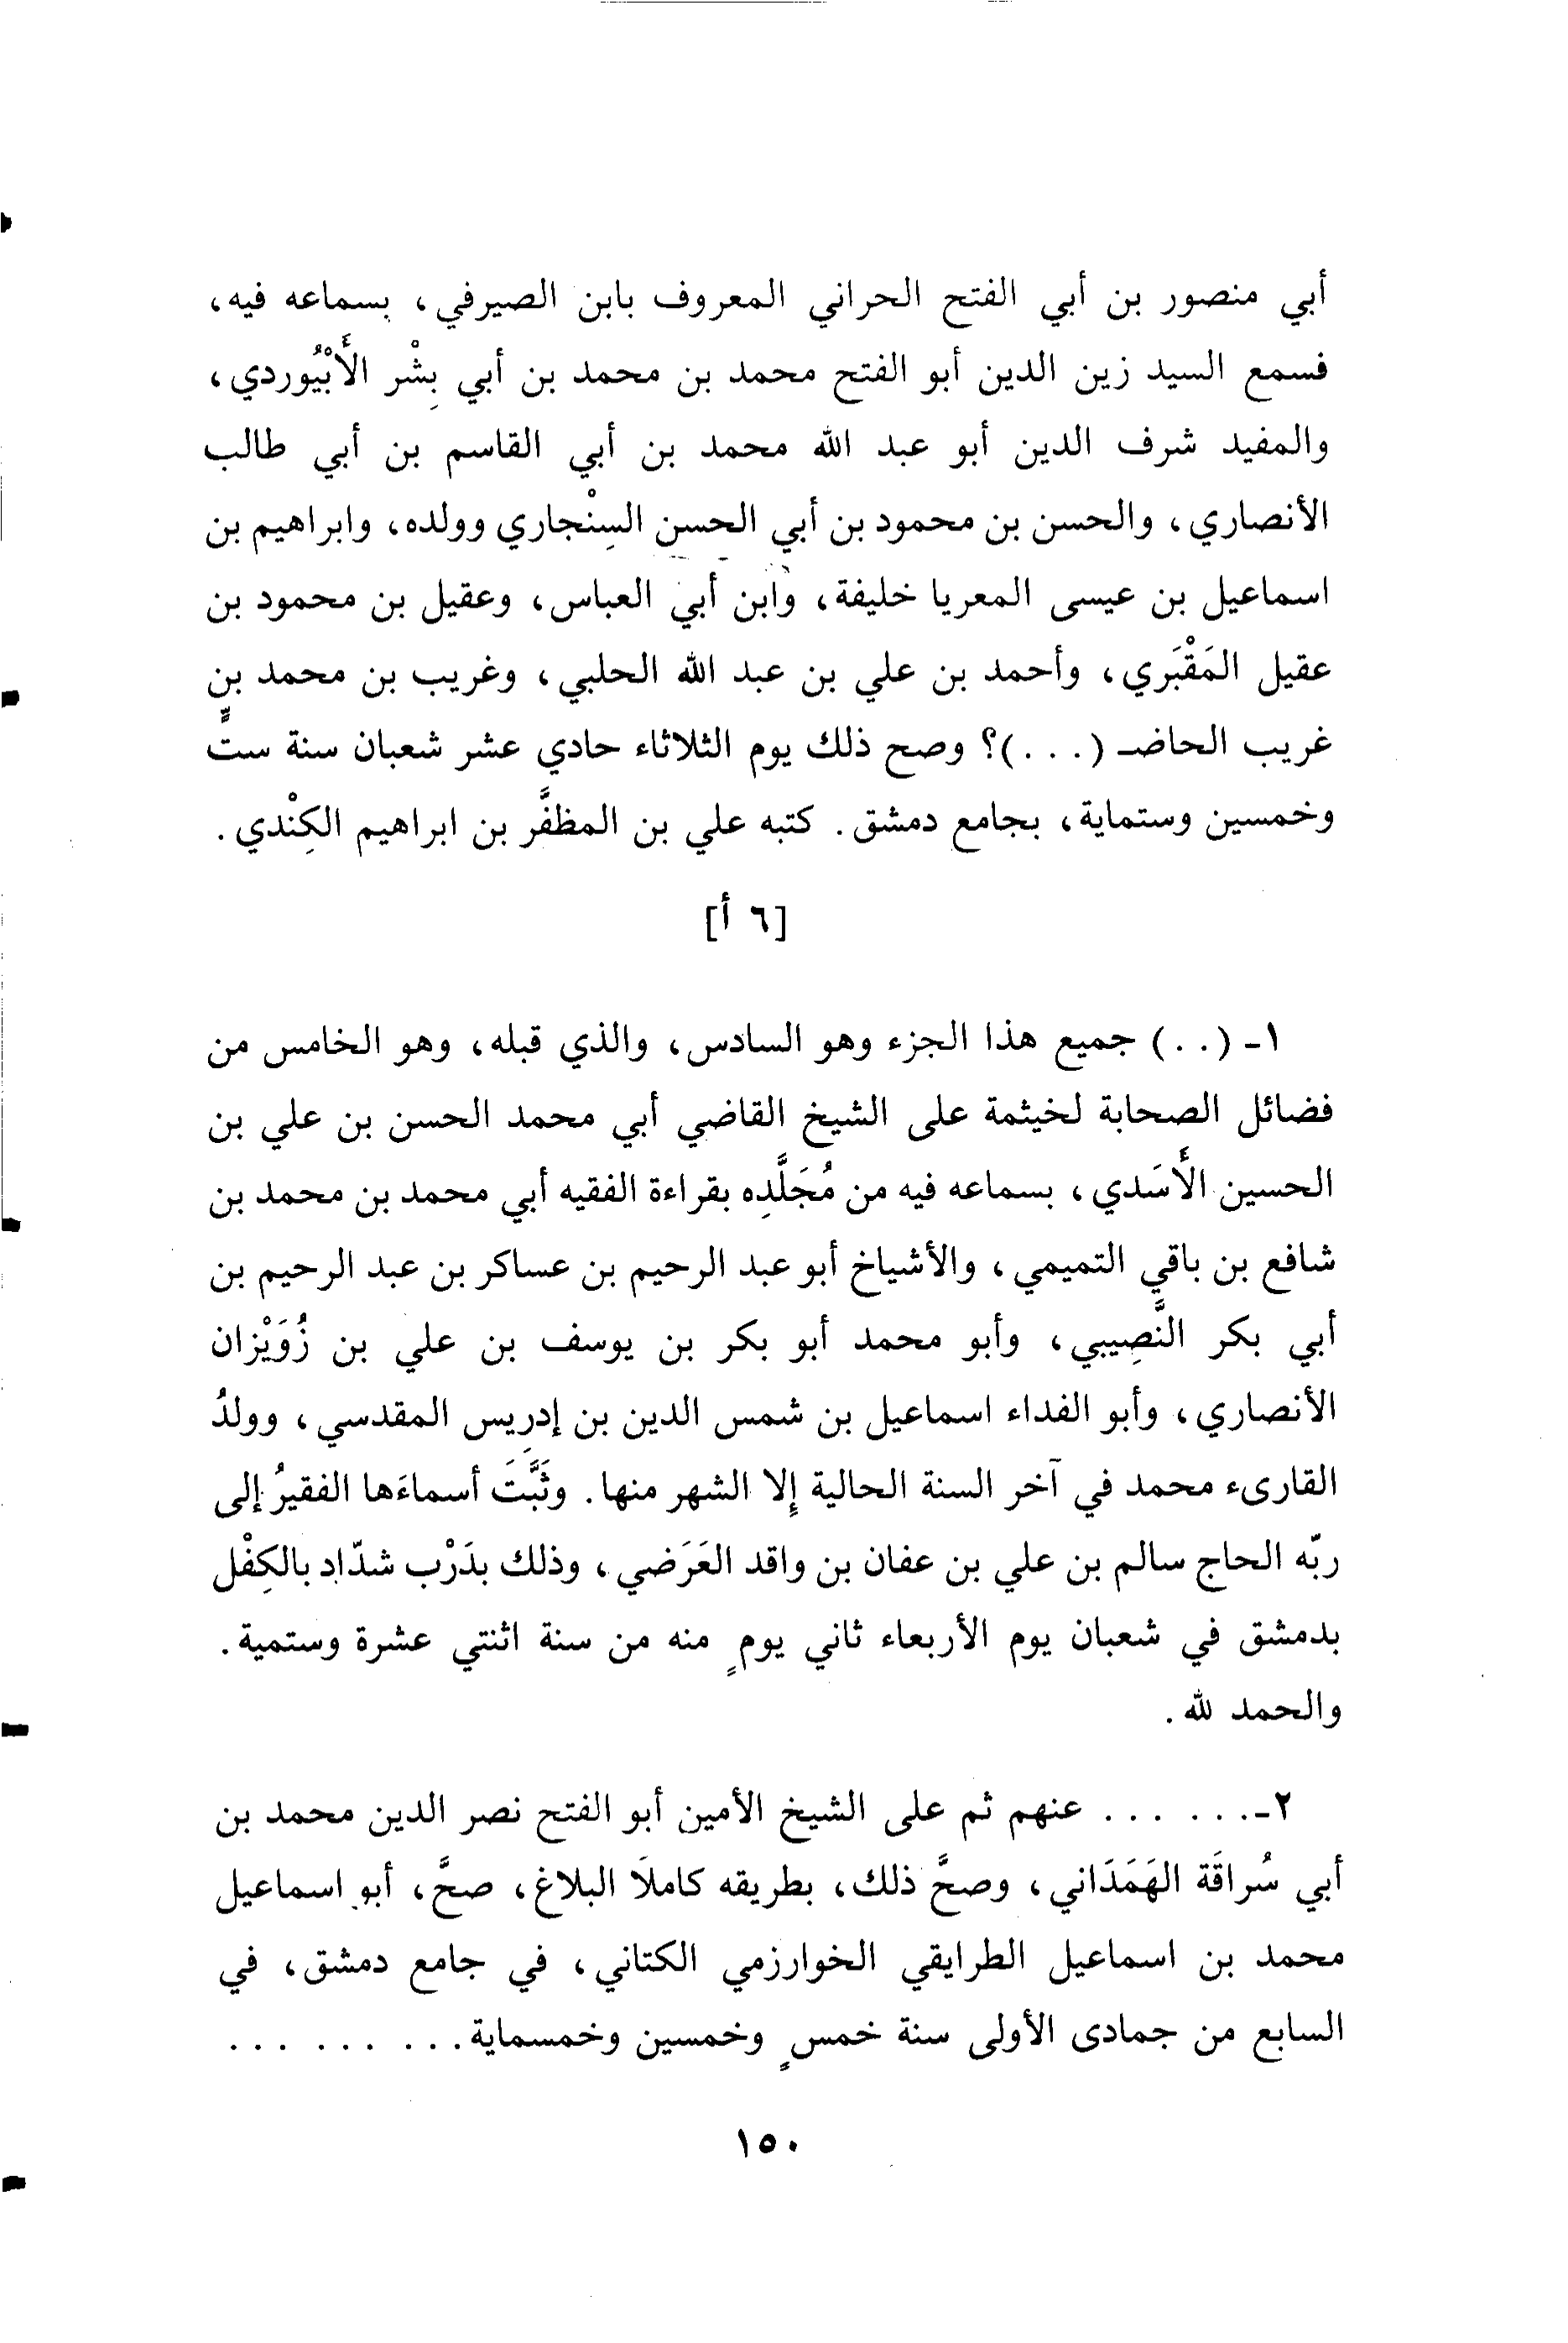 أبي منصور بن أبي الفتح الحراني المعروف بابن الصيرفي، بسماعه فيه،
فسمع السيد زين الدين أبو الفتح محمد بن محمد بن أبي بِشْر الأَبْيُوردي،
والمفيد شرف الدين أبو عبد الله محمد بن أبي القاسم بن أبي طالب
الأنصاري، والحسن بن محمود بن أبي الحسن السِنْجاري وولده، وابراهيم بن
اسماعيل بن عيسى المعريا خليفة، وابن أبي العباس، وعقيل بن محمود بن
عقيل المَقْبَري، وأحمد بن علي بن عبد الله الحلبي، وغريب بن محمد بن
غريب الحاضـ (...)؟ وصح ذلك يوم الثلاثاء حادي عشر شعبان سنة ستٍّ
وخمسين وستماية، بجامع دمشق. كتبه علي بن المظفَّر بن ابراهيم الكِنْدي.
[٦ أ]
١ـ (..) جميع هذا الجزء وهو السادس، والذي قبله، وهو الخامس من
فضائل الصحابة لخيثمة على الشيخ القاضي أبي محمد الحسن بن علي بن
الحسين الأَسَدي، بسماعه فيه من مُجَلَّدِه بقراءة الفقيه أبي محمد بن محمد بن
شافع بن باقي التميمي، والأشياخ أبو عبد الرحيم بن عساكر بن عبد الرحيم بن
أبي بكر النَّصِيبي، وأبو محمد أبو بكر بن يوسف بن علي بن زُوَيْزان
الأنصاري، وأبو الفداء اسماعيل بن شمس الدين بن إدرِيس المقدسي، وولدُ
القارىء محمد في آخر السنة الحالية إلا الشهر منها. وثَبَّتَ أسماءَها الفقيرُ إلى
ربّه الحاج سالم بن علي بن عفان بن واقد العَرَضي، وذلك بدَرْب شدّاد بالكِفْل
بدمشق في شعبان يوم الأربعاء ثاني يومٍ منه من سنة اثنتي عشرة وستمية.
والحمد لله.
٢ـ... ... عنهم ثم على الشيخ الأمين أبو الفتح نصر الدين محمد بن
أبي سُراقَة الهَمَدَاني، وصحَّ ذلك، بطريقه كاملَا البلاغ، صحَّ، أبو اسماعيل
محمد بن اسماعيل الطرايقي الخوارزمي الكتاني، في جامع دمشق، في
السابع من جمادى الأولى سنة خمسٍ وخمسين وخمسماية... ... ...
١٥٠